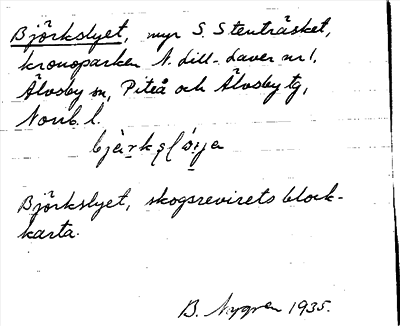 Björkslyet, myr S. Stenträsket,
kronoparken N. Lill-Laver nr 1,
Älvsby sn, Piteå och Älvsby tg,
Norrb. l.
Björkslyet, skogsrevirets block-
karta.
B. Nygren 1935.